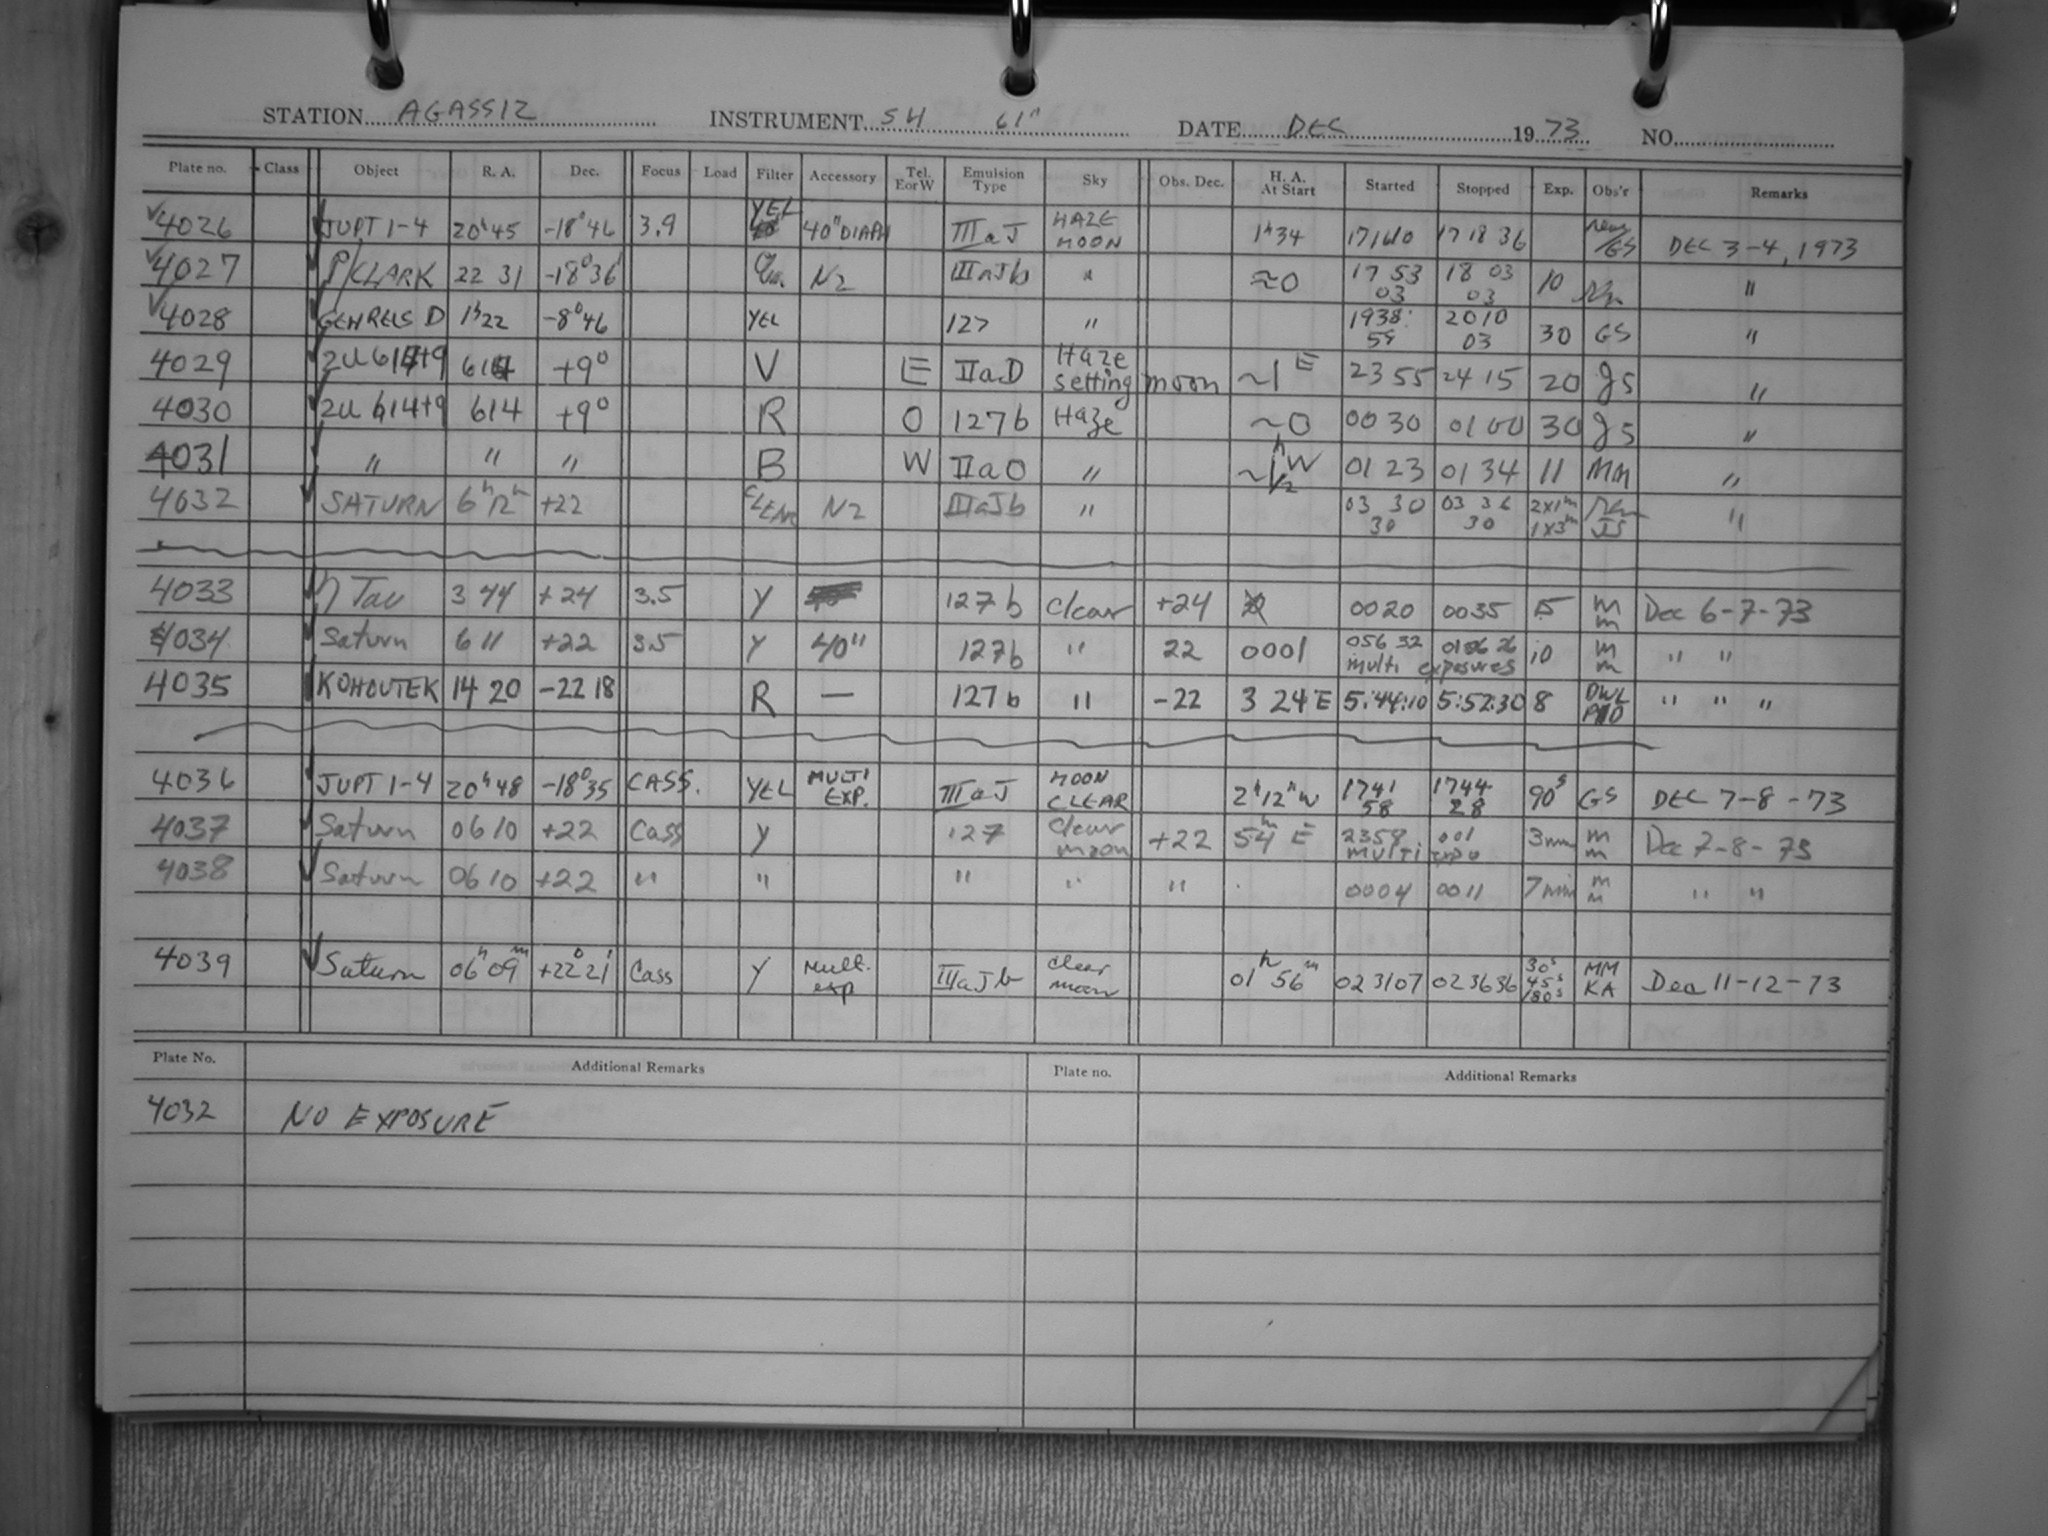 STATION AGASSIZ INSTRUMENT SH 61" DATE DEC 1973 NO.
Plate no. Class Object R. A. Dec. Focus Load Filter Accessory Tel. E or W Emulsion Type Sky Obs. Dec. H. A. At Start Started Stopped Exp. Obs'r Remarks
4026 JUPT 1-4 20h45 -18°46 3.9 YEL 40" DIAPH IIIaJ HAZE MOON 1h34 171610 17 18 36 /GS DEC 3-4, 1973
4027 P/CLARK 22 31 -18°36' N2 IIIaJb " ≈0 17 53 03 18 03 03 10 "
4028 GEHRELS D 1h22 -8°46 YEL 127 " 1938: 2010 03 30 GS "
4029 2U 614+9 614 +9° V E IIaD Haze setting moon ~1 E 23 55 24 15 20 JS "
4030 2U 614+9 614 +9° R O 127b Haze ~0 00 30 01 00 30 JS "
4031 " " " B W IIaO " ~1/2 h W 01 23 01 34 11 MM "
4032 SATURN 6h12m +22 CLEAR N2 IIIaJb " 03 30 30 03 36 30 2x1m 1x3m JS "
4033 η Tau 3 44 +24 3.5 Y 127b clear +24 0020 0035 15 mm Dec 6-7-73
4034 Saturn 6 11 +22 3.5 Y 40" 127b " 22 0001 056 32 0106 26 multi exposures 10 mm " "
4035 KOHOUTEK 14 20 -22 18 R — 127b " -22 3 24 E 5:44:10 5:52:30 8 DWL " " "
4036 JUPT 1-4 20h48 -18°35 CASS. YEL MULTI EXP. IIIaJ MOON CLEAR 2h12m W 1741 58 1744 28 90s GS DEC 7-8-73
4037 Saturn 06 10 +22 Cass Y 127 clear moon +22 54m E 2358 001 MULTI expo 3mm mm Dec 7-8-73
4038 Saturn 06 10 +22 " " " " " 0004 0011 7min mm " "
4039 Saturn 06h 09m +22°21' Cass Y Mult. exp IIIaJb clear moon 01h 56m 023107 023636 30s 45s 180s MM KA Dec 11-12-73
Plate No. Additional Remarks Plate no. Additional Remarks
4032 NO EXPOSURE